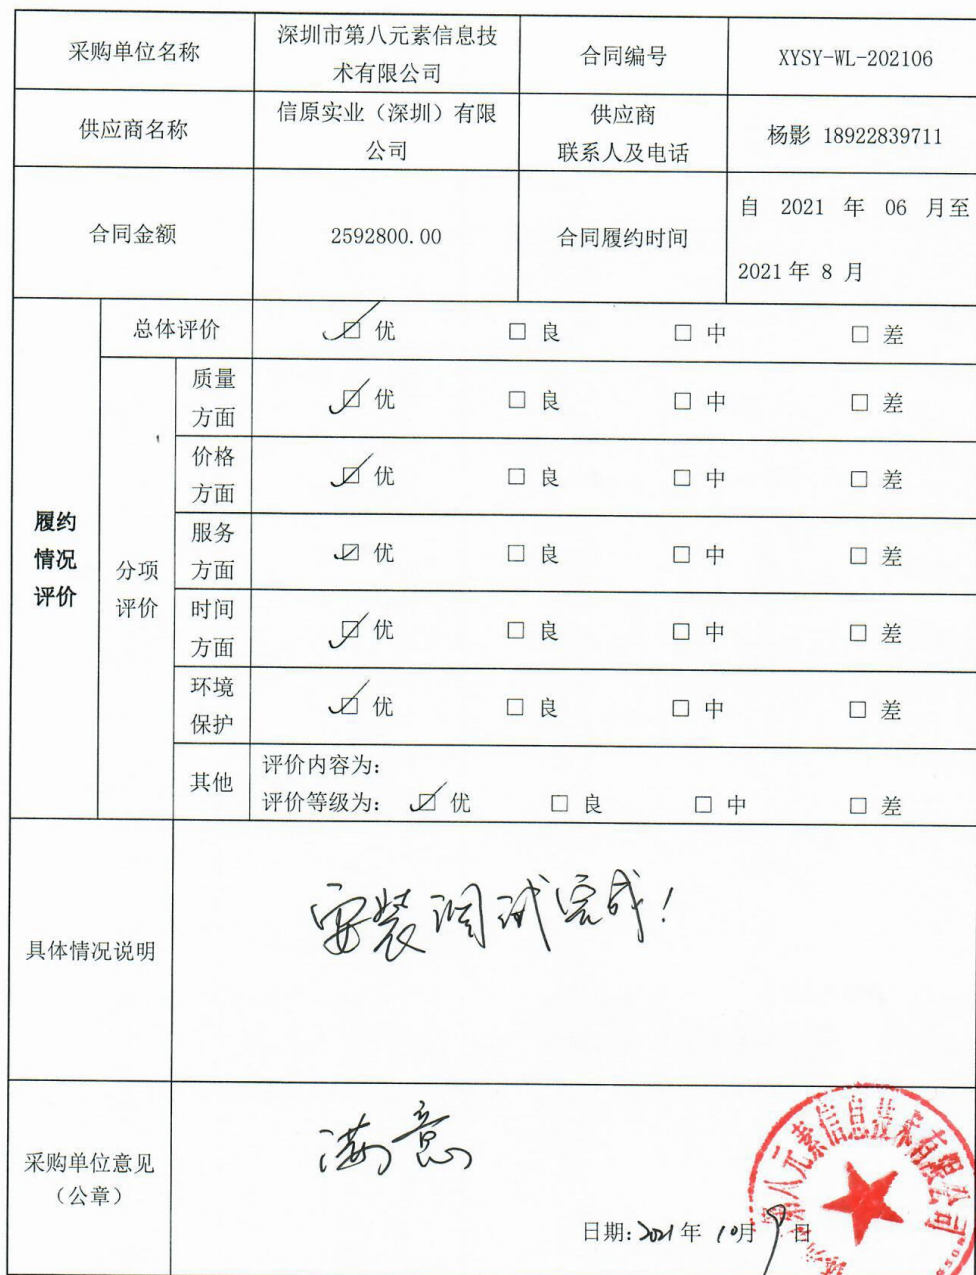 采购单位名称
深圳市第八元素信息技
术有限公司
合同编号
XYSY-WL-202106
供应商名称
信原实业（深圳）有限
公司
供应商
联系人及电话
杨影 18922839711
合同金额
2592800.00
合同履约时间
自 2021 年 06 月至
2021年 8 月
履约
情况
评价
总体评价
☑ 优 □ 良 □ 中 □ 差
分项
评价
质量
方面
☑ 优 □ 良 □ 中 □ 差
价格
方面
☑ 优 □ 良 □ 中 □ 差
服务
方面
☑ 优 □ 良 □ 中 □ 差
时间
方面
☑ 优 □ 良 □ 中 □ 差
环境
保护
☑ 优 □ 良 □ 中 □ 差
其他
评价内容为:
评价等级为: ☑ 优 □ 良 □ 中 □ 差
具体情况说明
安装调试完成!
采购单位意见
（公章）
满意
日期: 2021 年 10月 9 日
第八元素信息技术有限公司